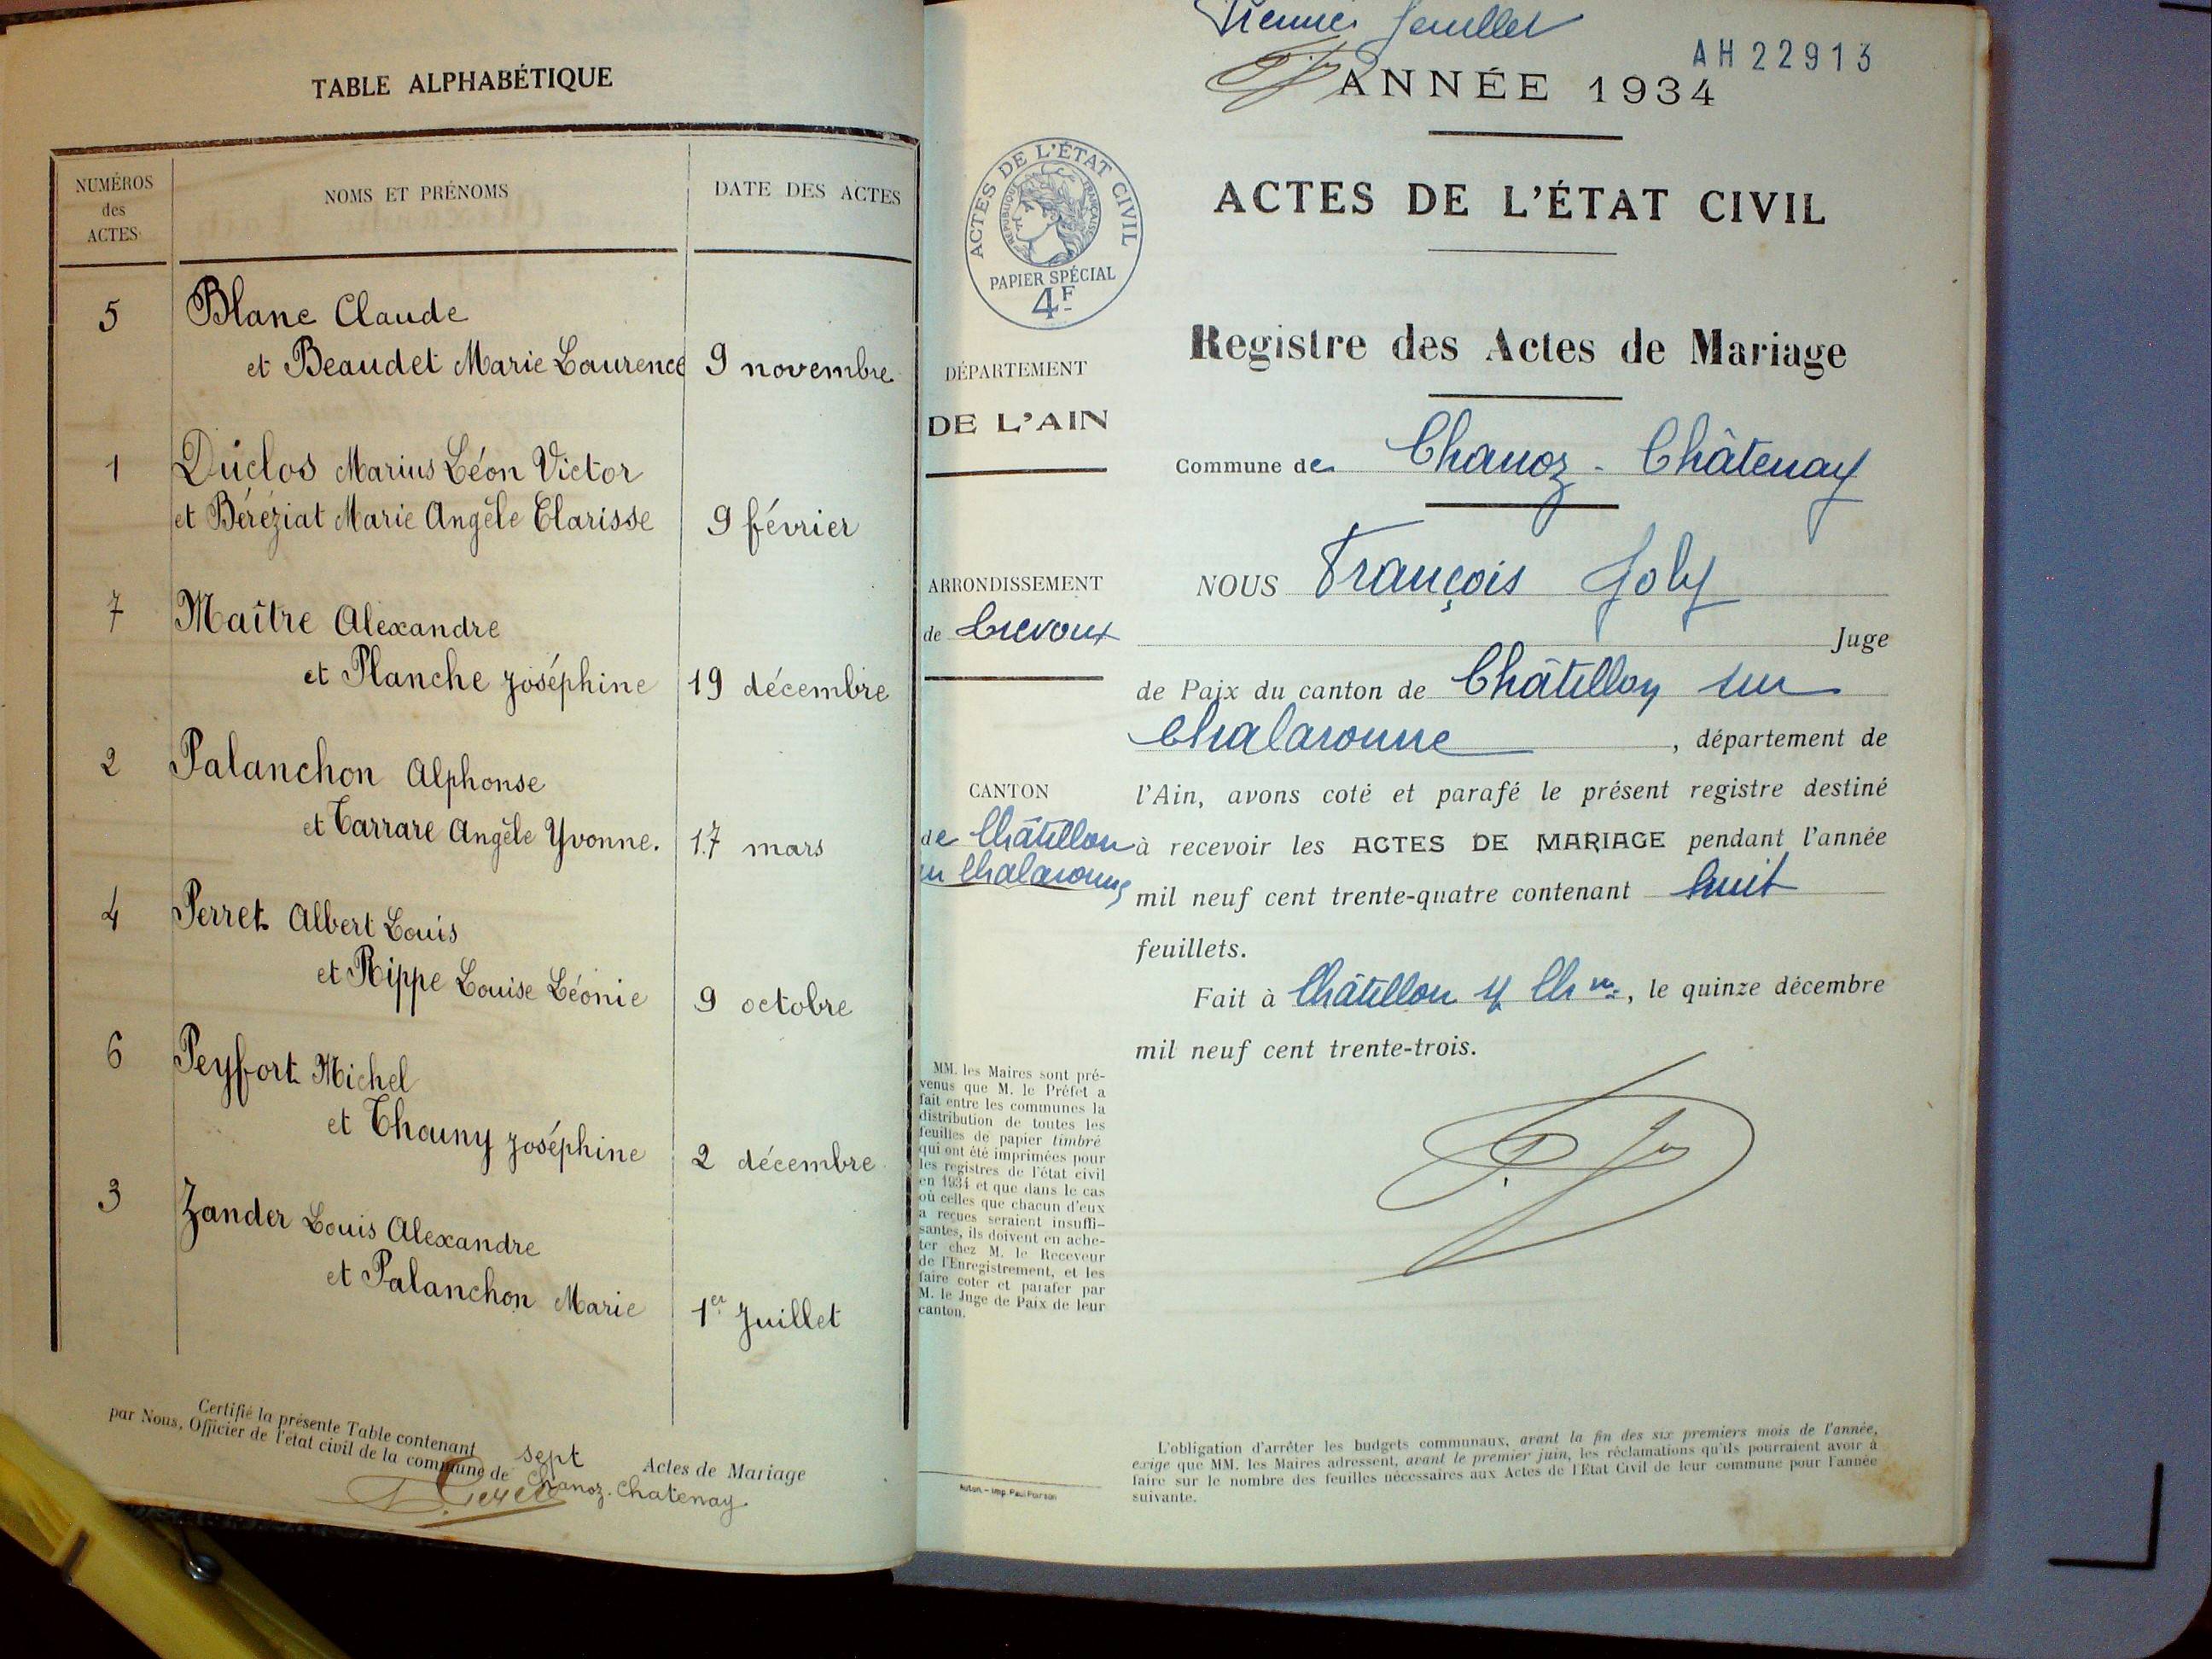 TABLE ALPHABÉTIQUE
NUMÉROS
des
ACTES
NOMS ET PRÉNOMS
DATE DES ACTES
5 Blanc Claude
et Beaudet Marie Laurence 9 novembre
1 Duclos Marius Léon Victor
et Béréziat Marie Angèle Clarisse 9 février
7 Maître Alexandre
et Planche Joséphine 19 décembre
2 Palanchon Alphonse
et Tarrare Angèle Yvonne. 17 mars
4 Perret Albert Louis
et Rippe Louise Léonie 9 octobre
6 Peyfort Michel
et Thouny Joséphine 2 décembre
3 Zander Louis Alexandre
et Palanchon Marie 1er Juillet
Certifié la présente Table contenant sept Actes de Mariage
par Nous, Officier de l'état civil de la commune de Chanoz-Chatenay
Premier feuillet
AH 22913
ANNÉE 1934
ACTES DE L'ÉTAT CIVIL
RÉPUBLIQUE FRANÇAISE
PAPIER SPÉCIAL
4F
ACTES DE L'ÉTAT CIVIL
Registre des Actes de Mariage
DÉPARTEMENT
DE L'AIN
Commune de Chanoz-Châtenay
ARRONDISSEMENT
de Trévoux
NOUS François Joly
Juge
de Paix du canton de Châtillon sur
Chalaronne, département de
CANTON
de Châtillon
sur Chalaronne
l'Ain, avons coté et parafé le présent registre destiné
à recevoir les ACTES DE MARIAGE pendant l'année
mil neuf cent trente-quatre contenant huit
feuillets.
Fait à Châtillon s/ Chne, le quinze décembre
mil neuf cent trente-trois.
MM. les Maires sont pré-
venus que M. le Préfet a
fait entre les communes la
distribution de toutes les
feuilles de papier timbré
qui ont été imprimées pour
les registres de l'état civil
en 1934 et que dans le cas
où celles que chacun d'eux
a reçues seraient insuffi-
santes, ils doivent en ache-
ter chez M. le Receveur
de l'Enregistrement, et les
faire coter et parafer par
M. le Juge de Paix de leur
canton.
L'obligation d'arrêter les budgets communaux, avant la fin des six premiers mois de l'année,
exige que MM. les Maires adressent, avant le premier juin, les réclamations qu'ils pourraient avoir à
faire sur le nombre des feuilles nécessaires aux Actes de l'Etat Civil de leur commune pour l'année
suivante.
Autun. - Imp. Paul Poirson